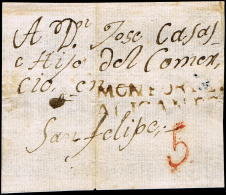 A Dn. Jose Casas
e Hijo del Comer
cio en
MONFORTE
ALICANTE
San Felipe,
5